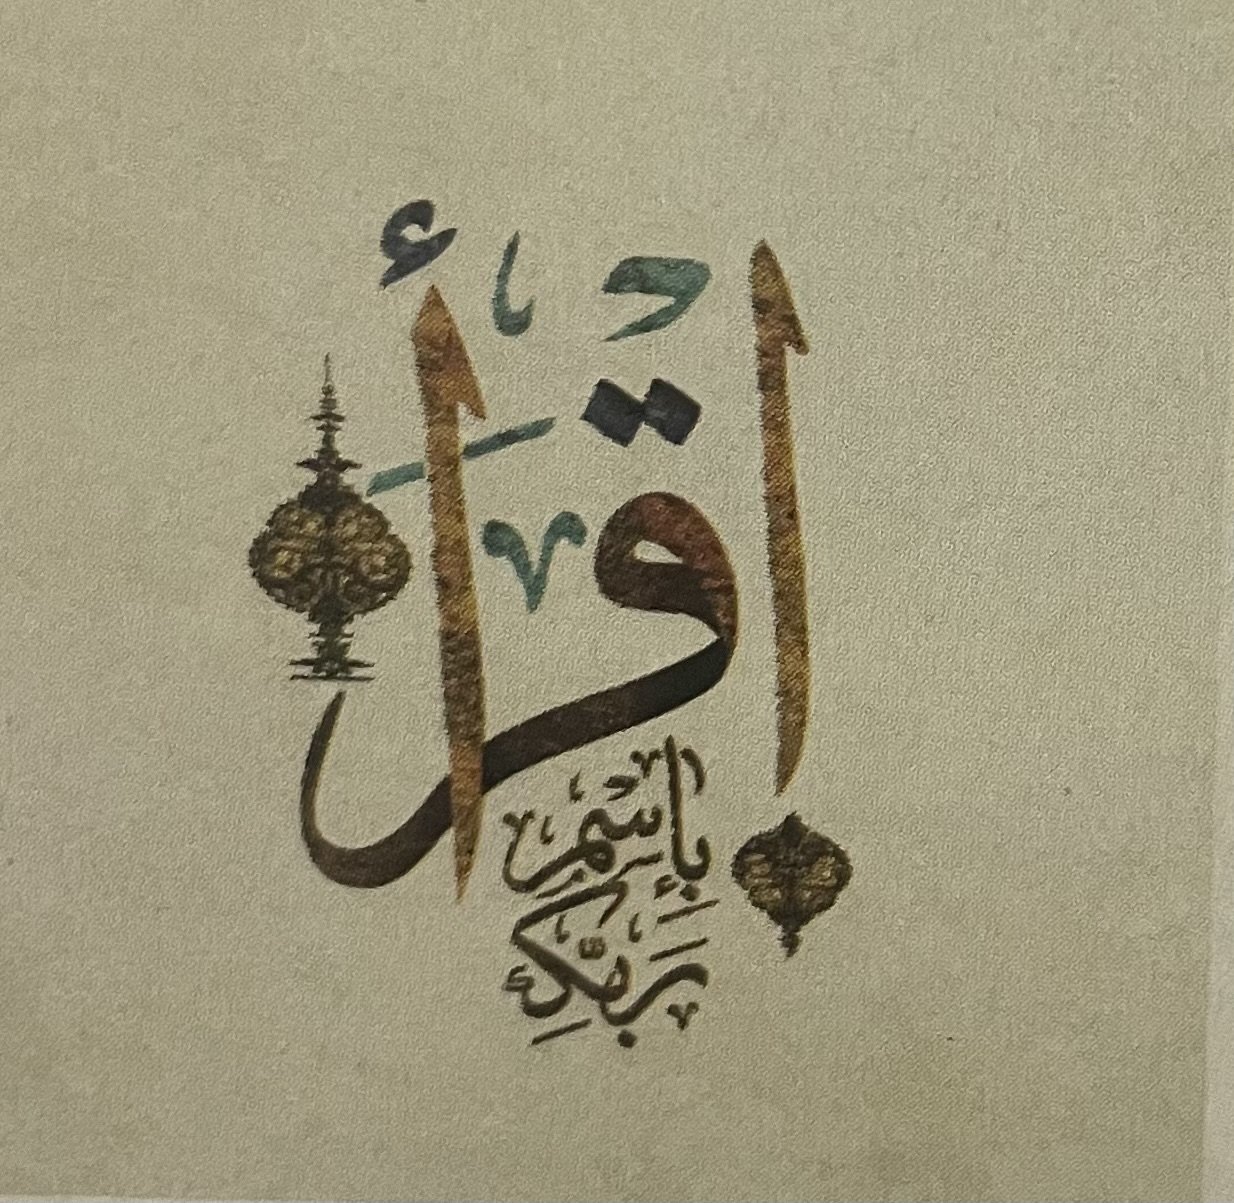 اقْرَأ
بِإسْمِ
رَبِّكَ